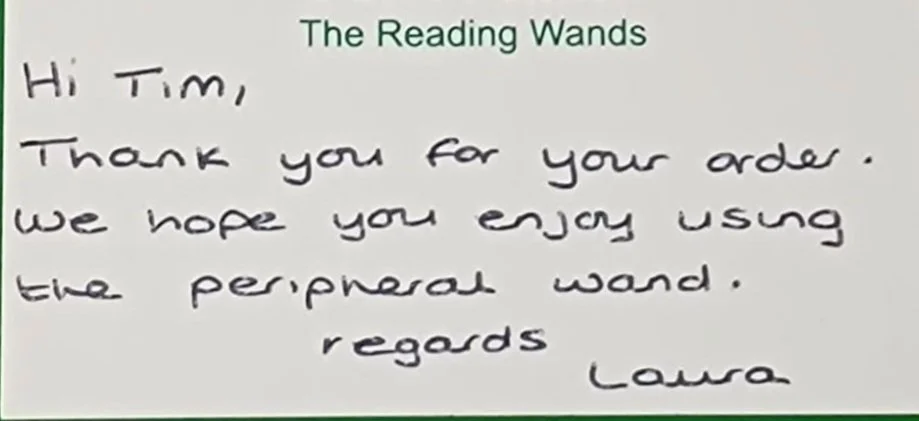 The Reading Wands
Hi Tim,
Thank you for your order.
We hope you enjoy using
the peripheral wand.
regards
Laura